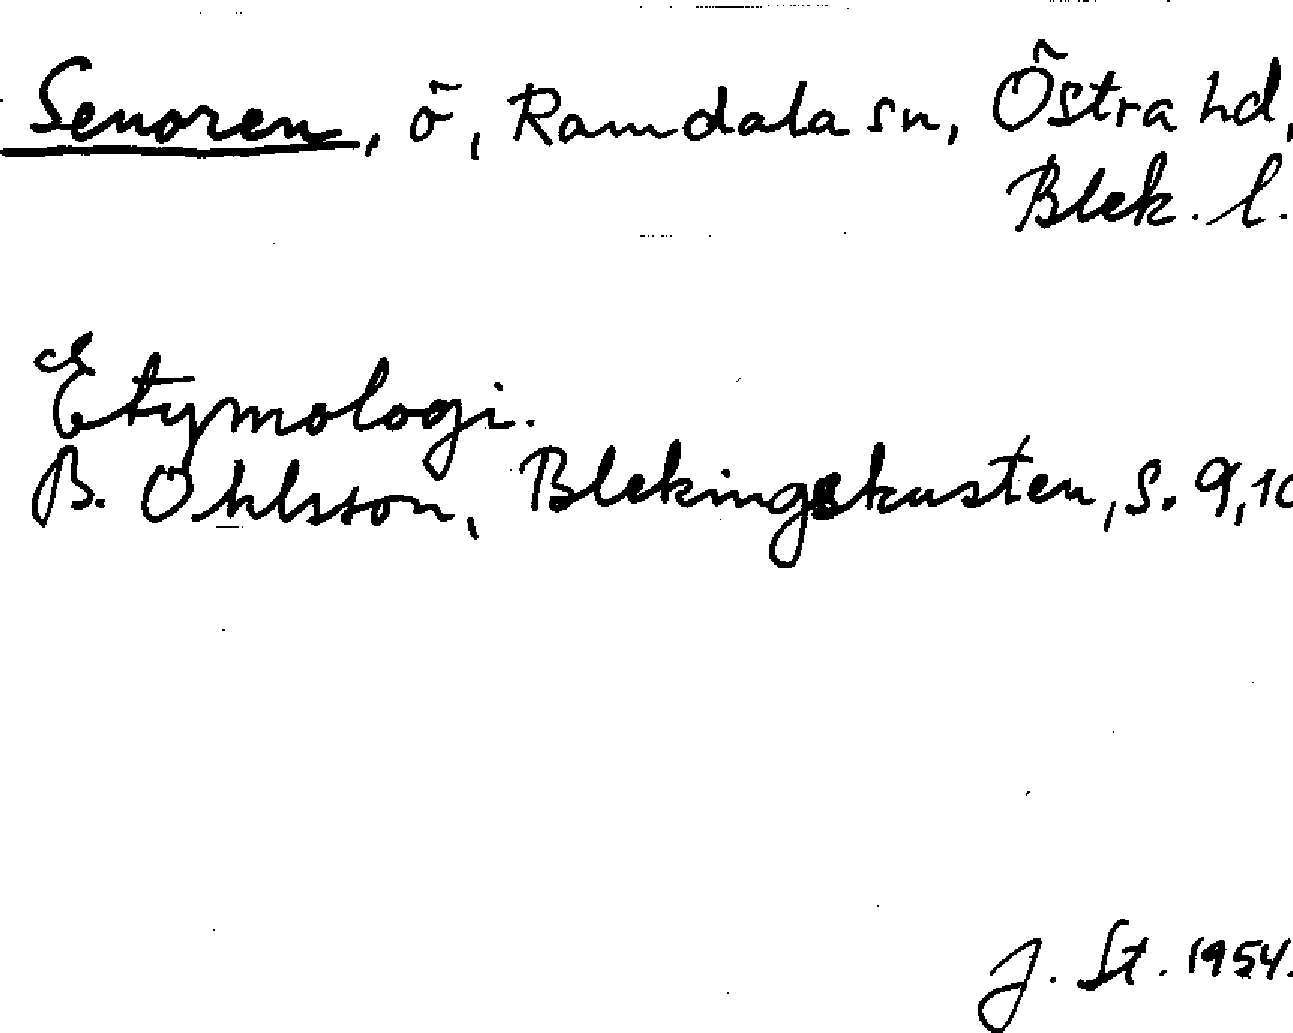 Senoren, ö, Ramdala sn, Östra hd,
Blek. l.
Etymologi.
B. Ohlsson, Blekingekusten, s. 9, 10
J. St. 1954.